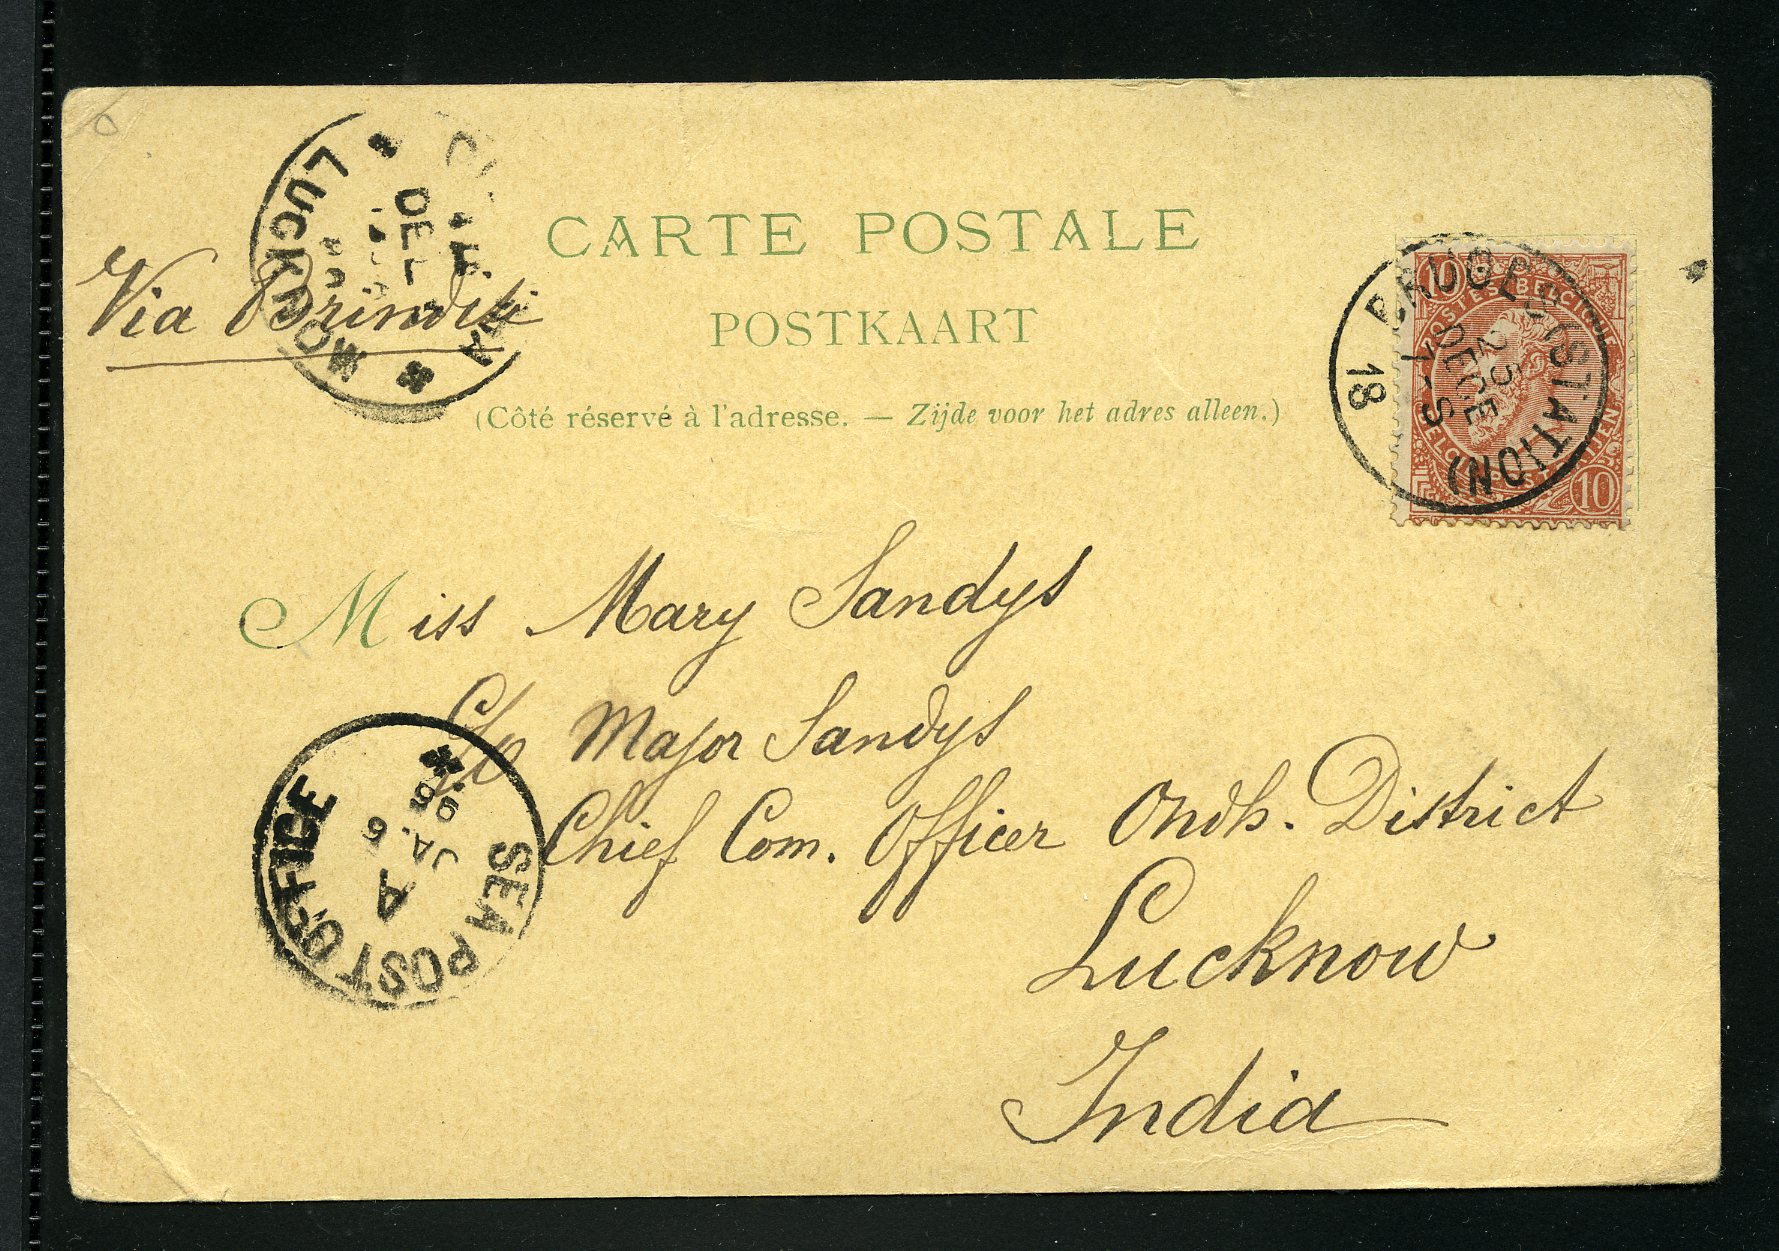 CARTE POSTALE
POSTKAART
(Côté réservé à l'adresse. — Zijde voor het adres alleen.)
Via Brindisi
LUCKNOW
DEL
BRUGES (STATION)
25
DECE
7-S
18
10
POSTES BELGIQUE
10
Miss Mary Sandys
C/o Major Sandys
Chief Com. Officer Oudh. District
Lucknow
India
SEA POST OFFICE
A
JA. 6